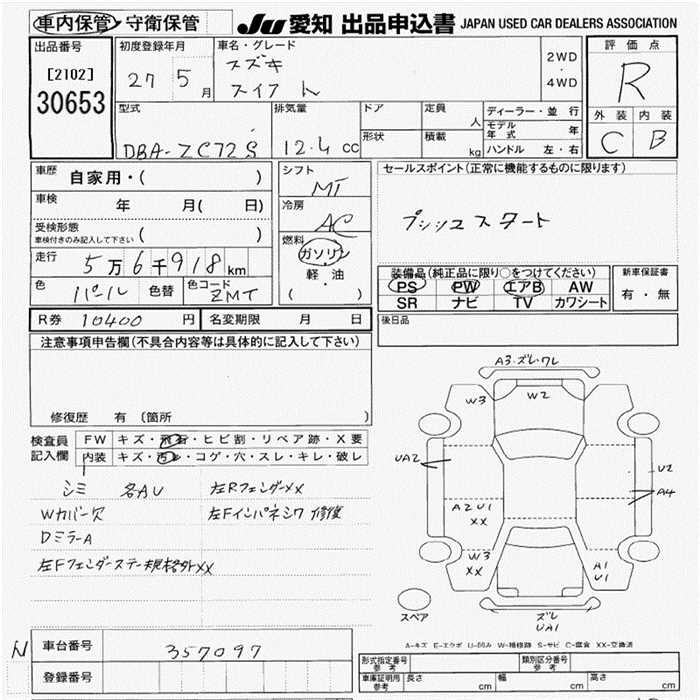 車内保管・守衛保管 JU 愛知 出品申込書 JAPAN USED CAR DEALERS ASSOCIATION
出品番号 初度登録年月 車名・グレード 評価点
[2102] 27 5月 スズキ 2WD・4WD R
30653 スイフト
外装 内装
型式 排気量 ドア 定員 人 ディーラー・並行
C B
形状 積載 kg モデル年式 年
DBA-ZC72S 12.4cc ハンドル 左・右
車歴 自家用・( ) シフト MT セールスポイント(正常に機能するものに限ります)
車検 年 月( 日) 冷房 AC プッシュスタート
受検形態 車検付きのみ記入して下さい ( ) 燃料 ガソリン
走行 5万6千918km 軽・油 装備品(純正品に限り○をつけてください) 新車保証書
色 パール 色替 色コード ZMT ( ・ ) PS PW エアB AW 有・無
SR ナビ TV カワシート
R券 10400円 名変期限 月 日 後日品
注意事項申告欄(不具合内容等は具体的に記入して下さい)
修復歴 有(箇所 )
検査員記入欄 FW キズ・飛石・ヒビ割・リペア跡・X要
内装 キズ・汚レ・コゲ・穴・スレ・キレ・破レ
シミ 各AU 左Rフェンダーxx
Wカバー欠 左Fインパネシワ 修復
DミラーA
左Fフェンダーステー規格外xx
A3・ズレ・ワレ
W3 W2
UA2 U2
A4
A2U1
XX
W3
XX
A1
U1
スペア ズレ
UA1
A-キズ E-エクボ U-凹み W-補修跡 S-サビ C-腐食 XX-交換済
N 車台番号 357097
登録番号
形式指定番号 参考 類別区分番号 参考
車庫証明 参考 長さ cm 幅 cm 高さ cm